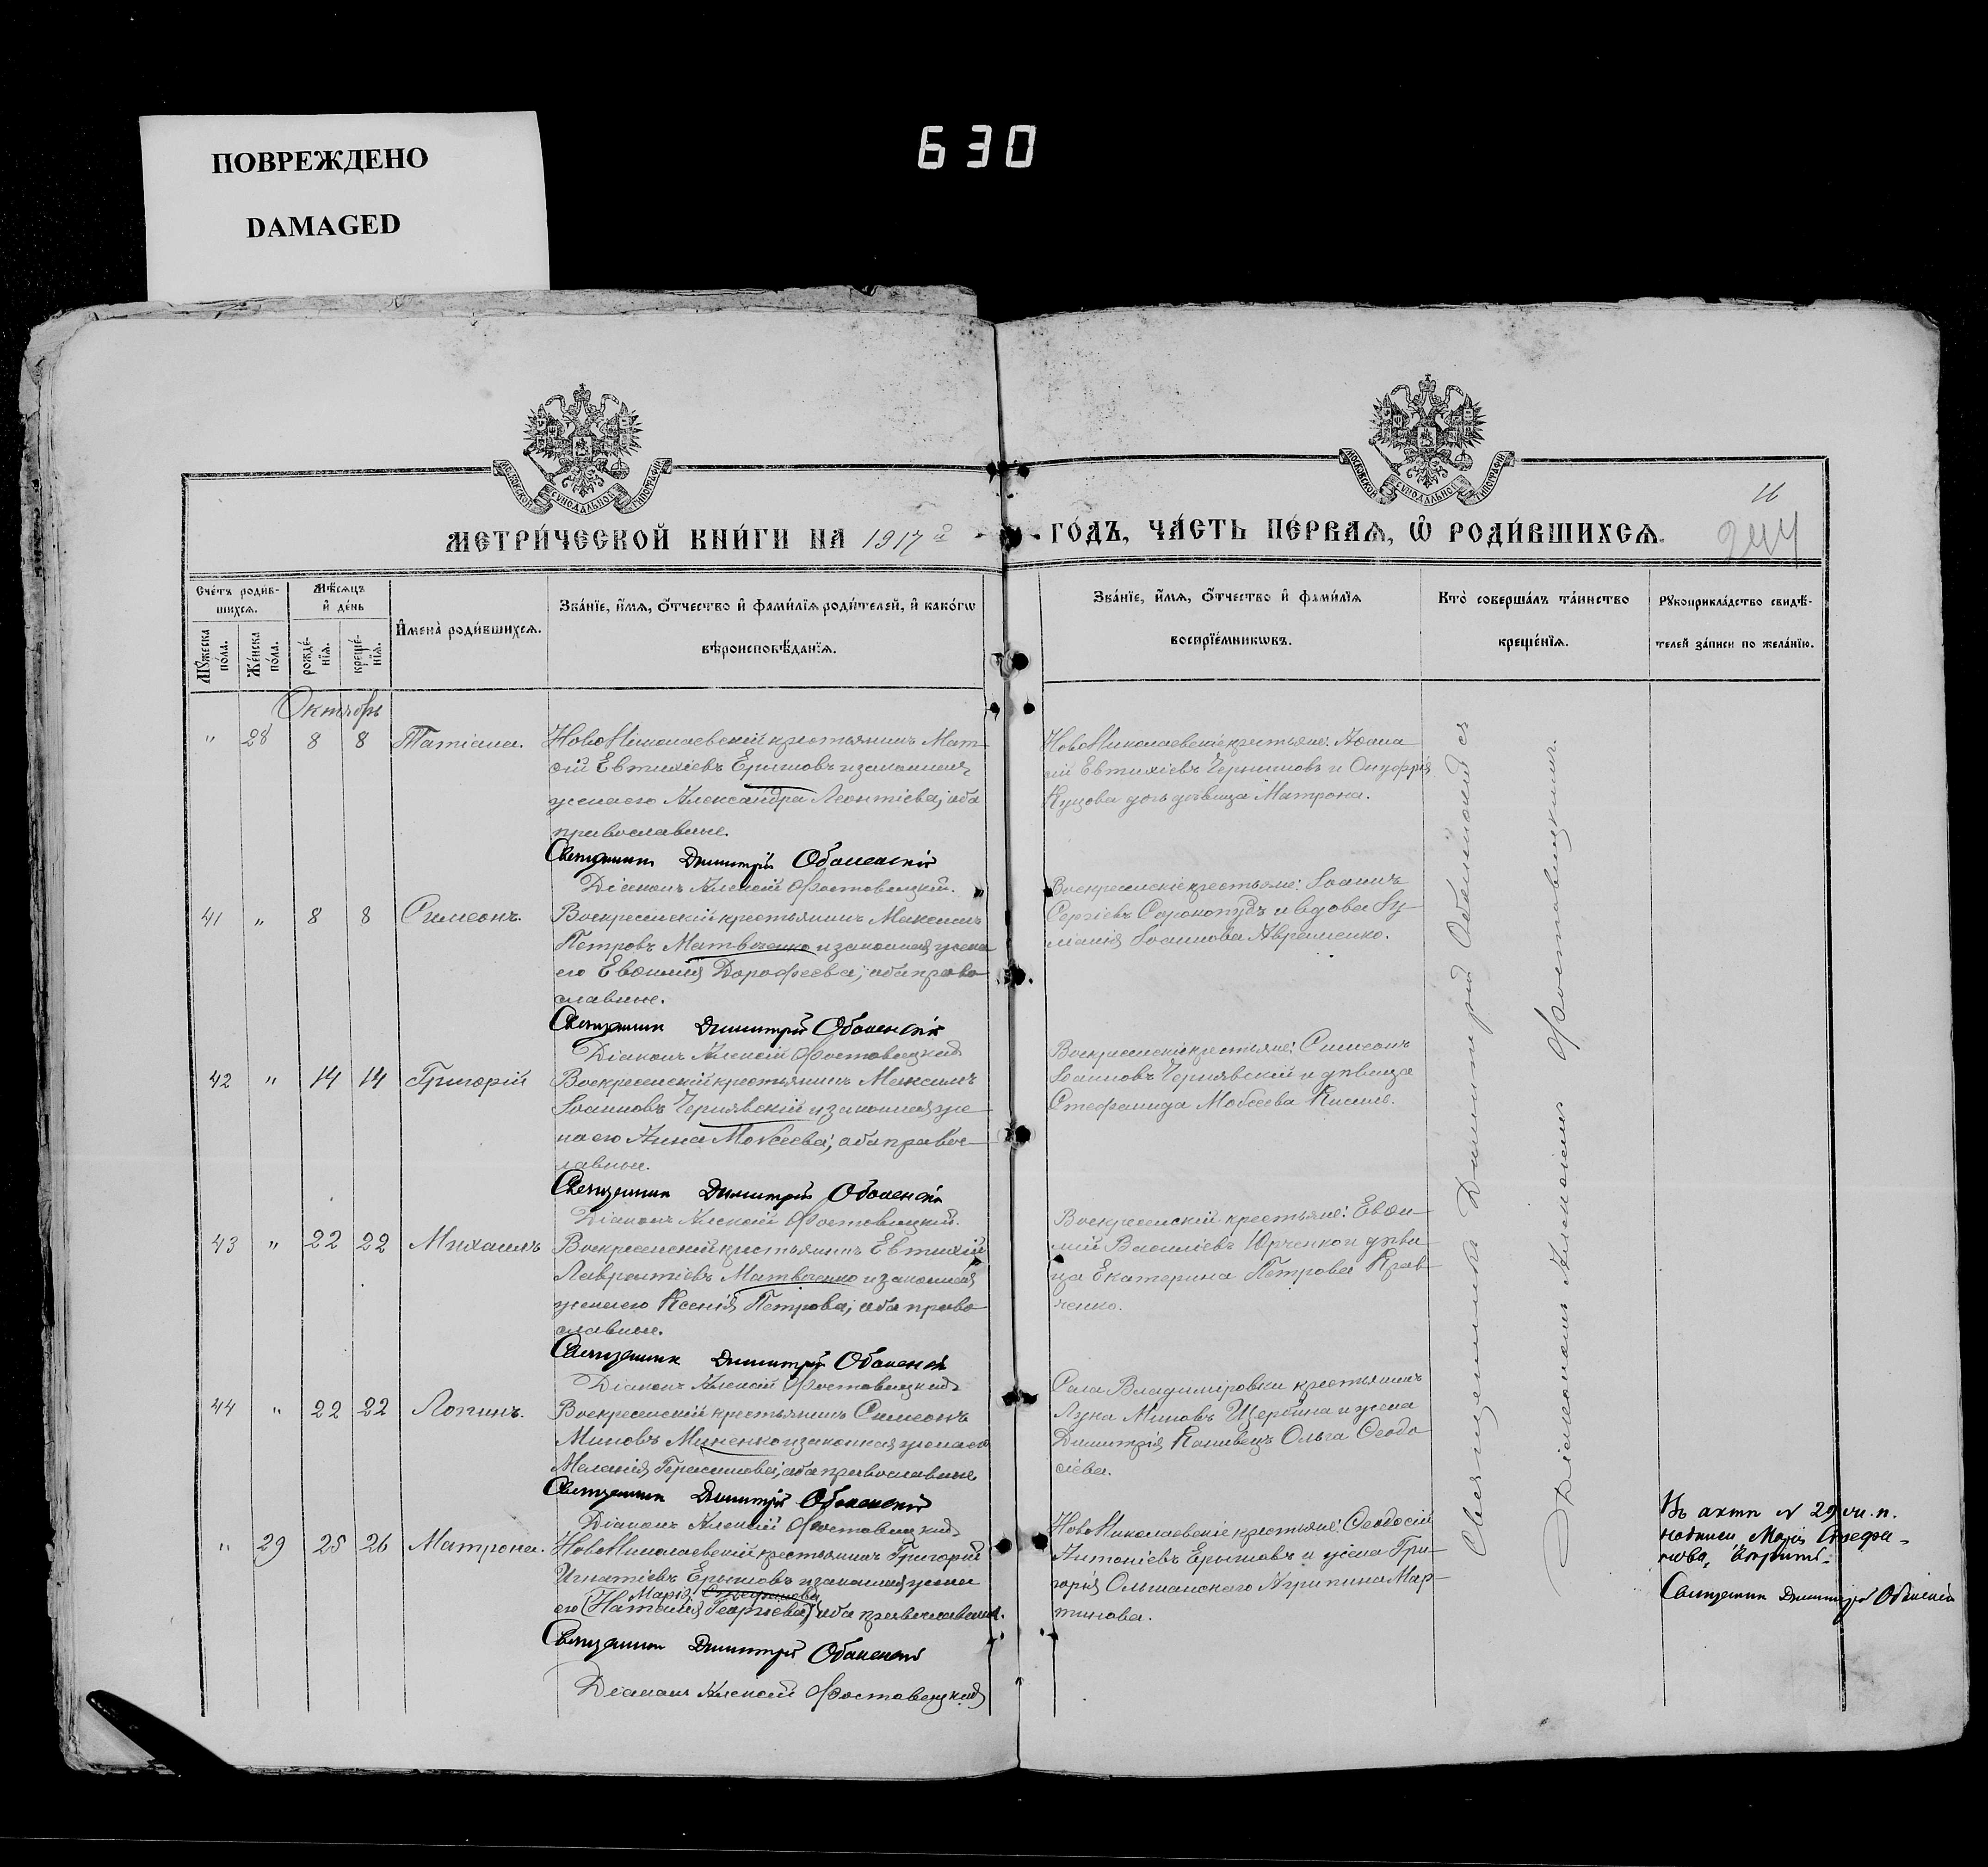 ПОВРЕЖДЕНО
DAMAGED
630
МОСКОВСКОЙ СѴНОДАЛЬНОЙ ТИПОГРАФІИ
МОСКОВСКОЙ СѴНОДАЛЬНОЙ ТИПОГРАФІИ
16
244
МЕТРИ́ЧЕСКОЙ КНИ́ГИ НА 1917й ГО́ДЪ, ЧА́СТЬ ПЕ́РВАѦ, Ѽ РОДИ́ВШИХСѦ.
Сче́тъ родив-
шихсѧ.
Мꙋ́жеска по́ла.
Же́нска по́ла.
Мѣ́сѧцъ
и҆ де́нь
рожде́-
нїѧ.
креще́-
нїѧ.
И҆мена̀ роди́вшихсѧ.
Зва́нїе, и҆́мѧ, ѻ҆́тчество и҆ фами́лїѧ роди́телей, и҆ како́гѡ
вѣроисповѣ́данїѧ.
Зва́нїе, и҆́мѧ, ѻ҆́тчество и҆ фами́лїѧ
воспрїе́мникѡвъ.
Кто̀ соверша́лъ та́инство
креще́нїѧ.
Рꙋкоприкла́дство свидѣ́-
телей за́писи по жела́нїю.
Октябрь
" 28 8 8 Татіана.
НовоНиколаевскій крестьянинъ Мат-
ѳій Евтихіевъ Ерышовъ и законная
жена его Александра Леонтіева; оба
православные.
Священникъ Димитрій Оболенскій
Діаконъ Алексій Фостовецкій.
НовоНиколаевскіе крестьяне: Аѳана
сій Евтихіевъ Чернышовъ и Онуфрія
Куцова дочь дѣвица Матрона.
41 " 8 8 Симеонъ.
Воскресенскій крестьянинъ Максимъ
Петровъ Матвѣенко и законная жена
его Евѳимія Дороѳеева; оба право
славные.
Священникъ Димитрій Оболенскій
Діаконъ Алексій Фостовецкій
Воскресенскіе крестьяне: Іоаннъ
Сергіевъ Сорокопудъ и вдова Іу-
ліанія Іоаннова Авраменко.
42 " 14 14 Григорій
Воскресенскій крестьянинъ Максимъ
Іоанновъ Чернявскій и законная же
на его Анна Моѵсеева; оба правос-
лавные.
Священникъ Димитрій Оболенскій
Діаконъ Алексій Фостовецкій.
Воскресенскіе крестьяне: Симеонъ
Іоанновъ Чернявскій и дѣвица
Стефанида Моѵсеева Кисиль.
43 " 22 22 Михаилъ
Воскресенскій крестьянинъ Евтихій
Лаврентіевъ Матвѣенко и законная
жена его Ксенія Петрова; оба право
славные.
Священникъ Димитрій Оболенскій
Діаконъ Алексій Фостовецкій
Воскресенскій крестьяне: Евѳи-
мій Василіевъ Юрченко и дѣви
ца Екатерина Петрова Крав-
ченко.
44 " 22 22 Логинъ.
Воскресенскій крестьянинъ Симеонъ
Миновъ Миненко и законная жена его
Меланія Герасимова; оба православные
Священникъ Димитрій Оболенскій
Діаконъ Алексій Фостовецкій
Села Владиміровки крестьянинъ
Лука Миновъ Щербина и жена
Димитрія Канивецъ Ольга Ѳеодо
сіева.
" 29 25 26 Матрона.
НовоНиколаевскій крестьянинъ Григорій
Игнатіевъ Ерышовъ и законная жена
Марія Стефанова
его (Наталія Георгіева) оба православные.
Священникъ Димитрій Оболенскій
Діаконъ Алексій Фостовецкій
НовоНиколаевскіе крестьяне: Ѳеодосій
Антоніевъ Ерышовъ и жена Гри-
горія Ольшанскаго Агрипина Мар-
тинова.
Священникъ Димитрій Оболенскій съ
Діакономъ Алексіемъ Фостовецкимъ.
Въ актѣ № 29 ж. п.
надписи Марія Стефа-
нова,
Священникъ Димитрій Оболенскій